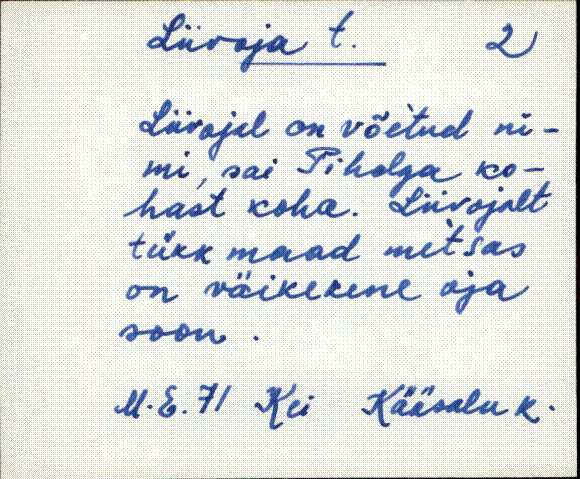 Liivoja t. 2
Liivojal on võetud ni-
mi, sai Piholga ko-
hast koha. Liivojalt
tükk maad metsas
on väikekene oja
soon.
M.E. 71 Kei Kääsalu k.